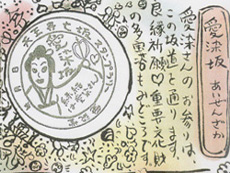 愛染坂
あいぜんざか
愛染さんのお参りは、
この坂道を通ります
良縁祈願♡重要文化財
の多宝塔もあります
天王寺七坂スタンプラリー
愛染坂